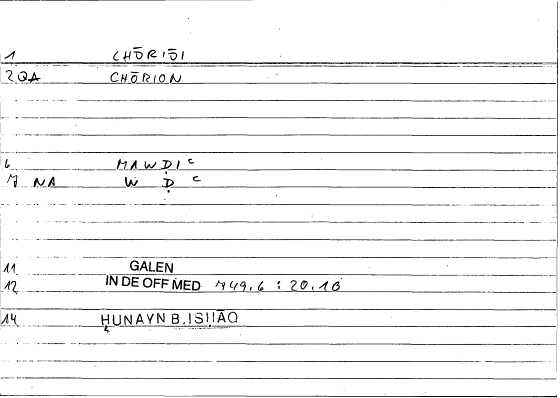 1 CHŌRIŌI
2 QA CHŌRION
6 MAWḌIᶜ
7 NA W Ḍ ᶜ
11 GALEN
12 IN DE OFF MED 749,6 : 20.10
14 ḤUNAYN B. ISḤĀQ